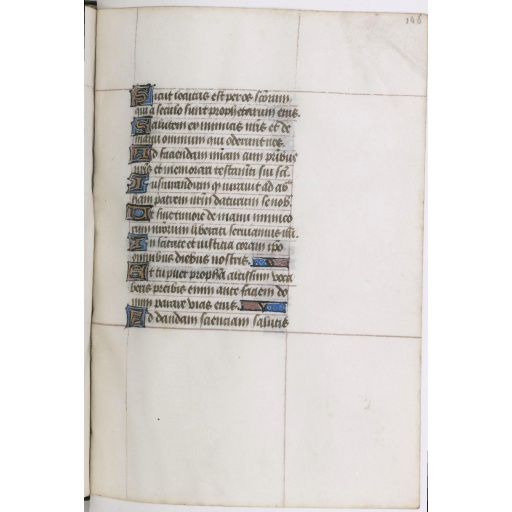 146
Sicut locutus est per os sc̄torum
qui a seculo sunt prophetarum eius.
Salutem ex inimicis nr̄is et de
manu omnium qui oderunt nos.
Ad faciendam mīam cum pr̄ibus
nr̄is et memorari testamēti sui sc̄i.
Iusiurandum q̄ iurauit ad ab
ham patrem nr̄m daturum se nob̄.
Ut sine timore de manu inimico
rum nr̄orum liberati seruiamus illi.
In sc̄itate et iusticia coram ip̄o
omnibus diebus nostris.
Et tu puer propheta altissimi voca
beris preibis enim ante faciem do
mini parare vias eius.
Ad dandam scienciam salutis